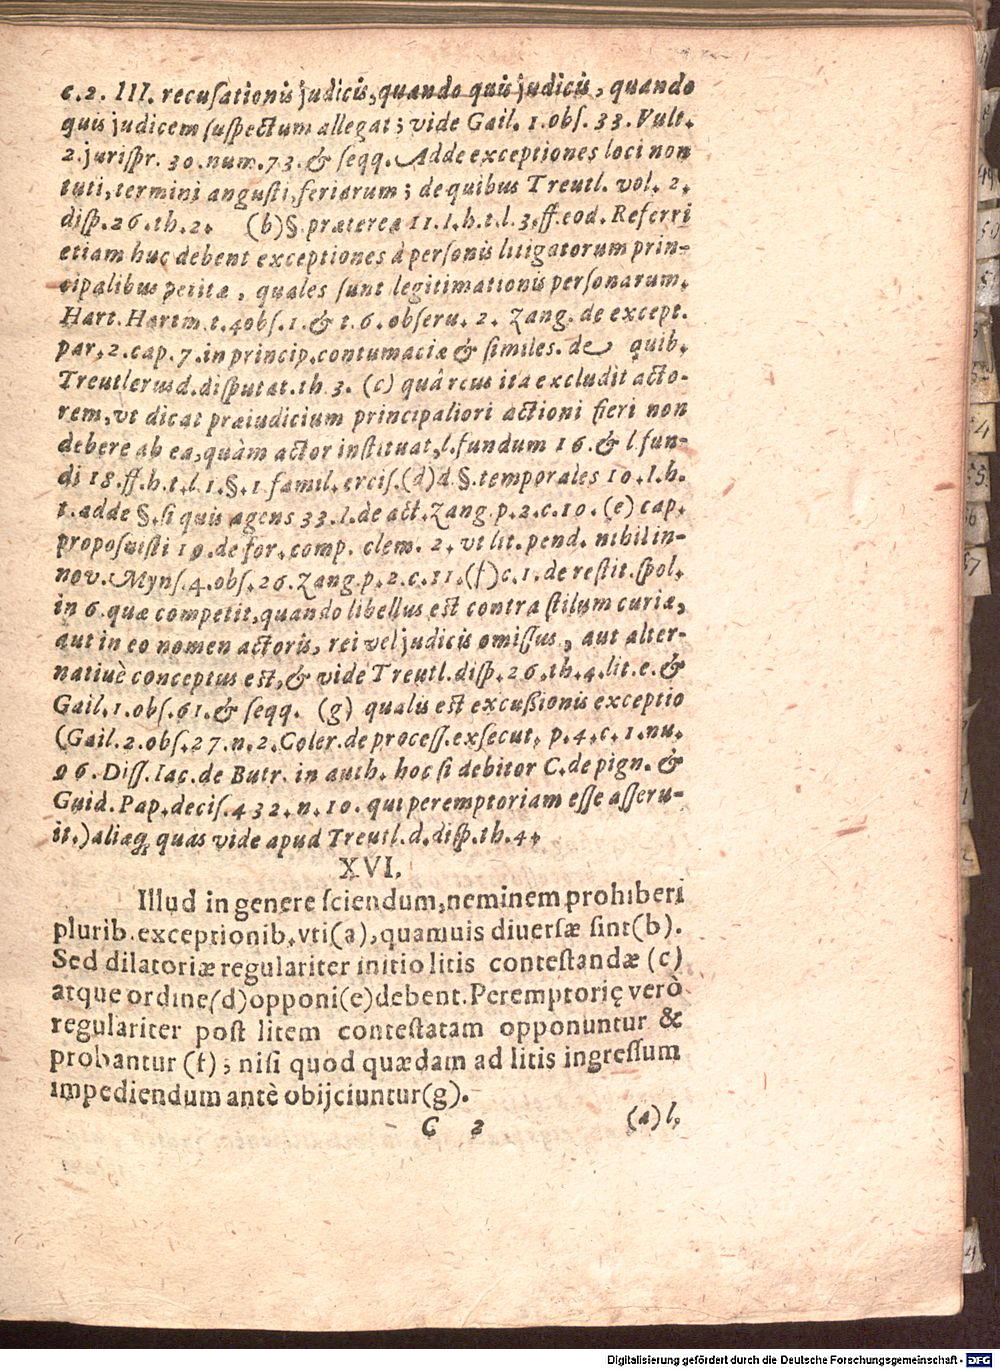 c.2. III. recuſationis judicis, quando quis judicis, quando
quis judicem ſuſpectum allegat; vide Gail. 1.obſ. 33. Vult.
2.juriſpr. 30.num.73.& ſeqq. Adde exceptiones loci non
tuti, termini anguſti, feriarum; de quibus Treutl. vol. 2.
diſp.26.th.2. (b)§ præterea 11.l.h.t.l.3.ff.eod. Referri
etiam huc debent exceptiones à perſonis litigatorum prin-
cipalibus petitæ, quales ſunt legitimationis perſonarum.
Hart. Hartm t.4obſ.1.& t.6.obſeru.2. Zang. de except.
par.2.cap.7.in princip.contumaciæ & ſimiles. de quib.
Treutlerus d.diſputat.th 3. (c) quâ reus ita excludit acto-
rem, vt dicat præiudicium principaliori actioni fieri non
debere ab ea, quàm actor inſtituat, l.fundum 16.& l.fun-
di 18.ff.h.t.l.1.§.1 famil.erciſ.(d)d.§.temporales 10.l.h.
t.adde §.ſi quis agens 33.l.de act.Zang p.2.c.10.(e) cap.
propoſuiſti 19.de for.comp. clem. 2. vt lit.pend. nihil in-
nov. Mynſ.4.obſ.26.Zang.p.2.c.11.(f)c.1.de reſtit.ſpol.
in 6.quæ competit, quando libellus eſt contra ſtilum curiæ,
aut in eo nomen actoris, rei vel judicis omiſſus, aut alter-
natiuè conceptus eſt, & vide Treutl.diſp.26.th.4.lit.e.&
Gail.1.obſ.61.& ſeqq. (g) qualis eſt excußionis exceptio
(Gail.2.obſ.27.n.2.Coler.de proceſſ.exſecut. p.4.c.1.nu.
96.Diſſ.Iac.de Butr. in auth. hoc ſi debitor C.de pign. &
Guid. Pap.deciſ.432.n.10. qui peremptoriam eſſe aſſeru-
it.) aliaſq; quas vide apud Treutl.d.diſp.th.4.
XVI.
Illud in genere ſciendum, neminem prohiberi
plurib.exceptionib.vti(a), quamuis diuerſæ ſint(b).
Sed dilatoriæ regulariter initio litis conteſtandæ (c)
atque ordine(d)opponi(e)debent. Peremptorię verò
regulariter poſt litem conteſtatam opponuntur &
probantur (f); niſi quod quædam ad litis ingreſſum
impediendum antè obijciuntur(g).
C 2 (a) l.
Digitalisierung gefördert durch die Deutsche Forschungsgemeinschaft - DFG